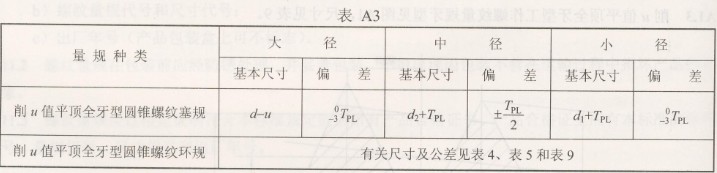 表 A3
量规种类 大径 中径 小径
基本尺寸 偏差 基本尺寸 偏差 基本尺寸 偏差
削 u 值平顶全牙型圆锥螺纹塞规 d–u ⁰₋₃T_PL d₂+T_PL ±T_PL/2 d₁+T_PL ⁰₋₃T_PL
削 u 值平顶全牙型圆锥螺纹环规 有关尺寸及公差见表 4、表 5 和表 9